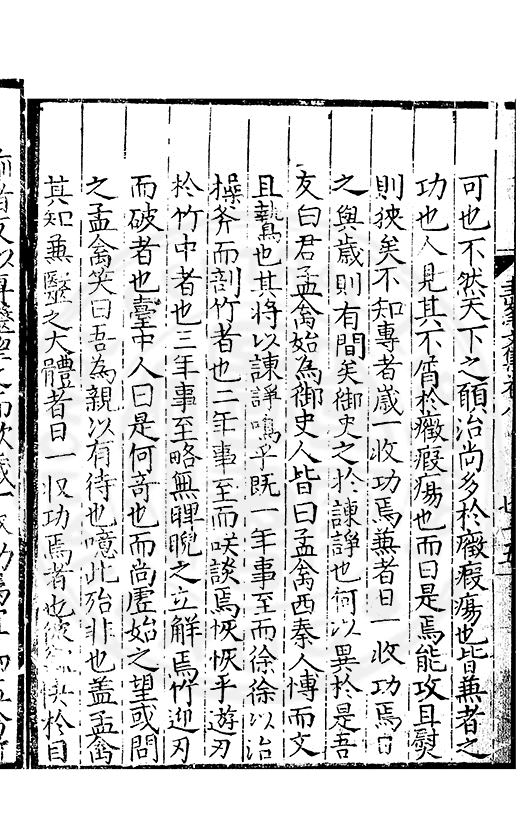 可也不然天下之願治尚多於癥瘕瘍也皆兼者之
功也人見其不屑於癥瘕瘍也而曰是焉能攻且熨
則狹矣不知專者歲一收功焉兼者日一收功焉日
之與歲則有間矣御史之於諫諍也何以異於是吾
友曰君孟禽始為御史人皆曰孟禽西秦人慱而文
且鷙也其將以諫諍鳴乎既一年事至而徐徐以治
操斧而剖竹者也二年事至而咲談焉恢恢乎遊刃
於竹中者也三年事至略無睥睨之立解焉竹迎刃
而破者也臺中人曰是何奇也而尚虛始之望或問
之孟禽笑曰吾為親以有待也噫此殆非也蓋孟禽
其知兼醫之大體者日一収功焉者也彼
於目